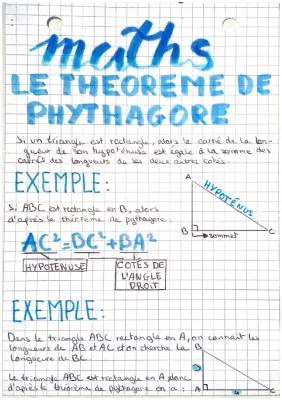 maths
LE THEOREME DE
PHYTHAGORE
Si un triangle est rectangle, alors le carré de la lon-
gueur de son hypoténuse est égale à la somme des
carrés des longueurs de ses deux autres cotés.
EXEMPLE:
A
HYPOTÉNUS
Si ABC est rectangle en B, alors
d'après le théorème de pythagore:
AC²=BC²+BA²
B
sommet
C
HYPOTÉNUSE
COTÉS DE
L'ANGLE
DROIT
EXEMPLE:
Dans le triangle ABC rectangle en A, on connait les
longueurs de AB et AC et on cherche la
longueure de BC.
B
Le triangle ABC est rectangle en A donc
d'après le théorème de pythagore on a:
A
C